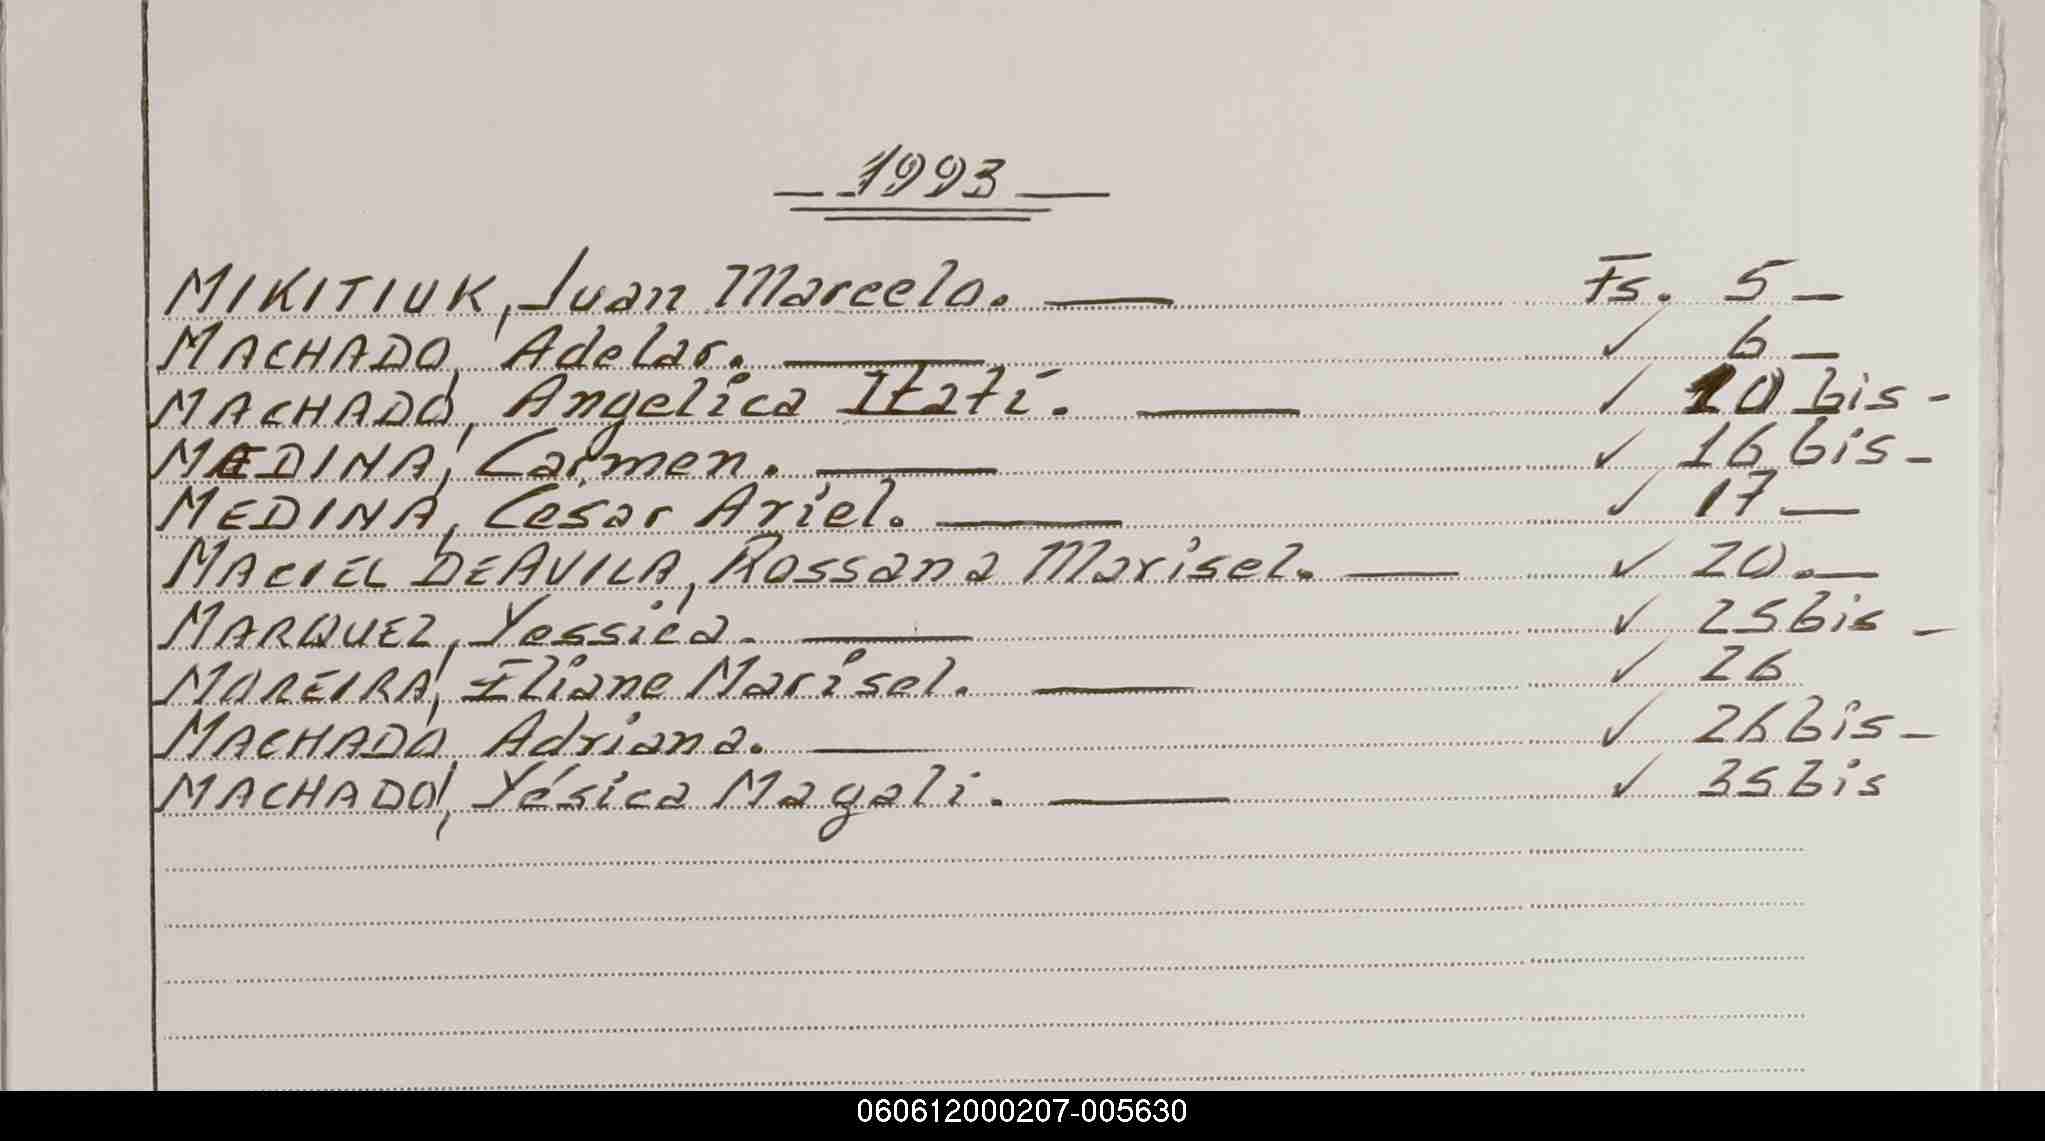 1993
MIKITIUK, Juan Marcelo. Fs. 5
MACHADO, Adelar. ✓ 6
MACHADO, Angelica Itatí. ✓ 10 bis
MEDINA, Carmen. ✓ 16 bis
MEDINA, César Ariel. ✓ 17
MACIEL DE AVILA, Rossana Marisel. ✓ 20.
MARQUEZ, Yessica. ✓ 25 bis
MOREIRA, Eliane Marisel. ✓ 26
MACHADO, Adriana. ✓ 26 bis
MACHADO, Yésica Magali. ✓ 35 bis
060612000207-005630